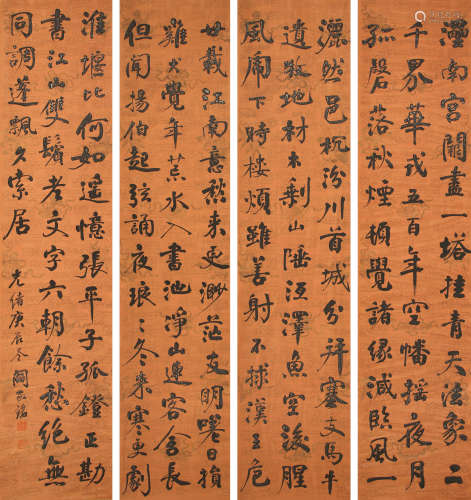 澶南宫闕盡一塔挂青天法象二
千界華戎五百年空幡摇夜月
孤磬落秋煙頓覺諸緣減臨風一
灑然邑枕汾川首城分井塞支馬牛
遺牧地材木剩山陲澤魚空後腥
風下時樓煩雖善射不捄漢王危
廿載江南意愁来更渺茫支明嗟日損
難覺年荒水入書池淨山連客舍長
但聞揚伯起弦誦夜琅〻冬寒更劇
淮堰比何如遥憶張平子孤鐙正勘
書江山雙鬢老文字六朝餘愁绝無
同調蓬飄久索居
光緒庚辰冬 閻敬銘